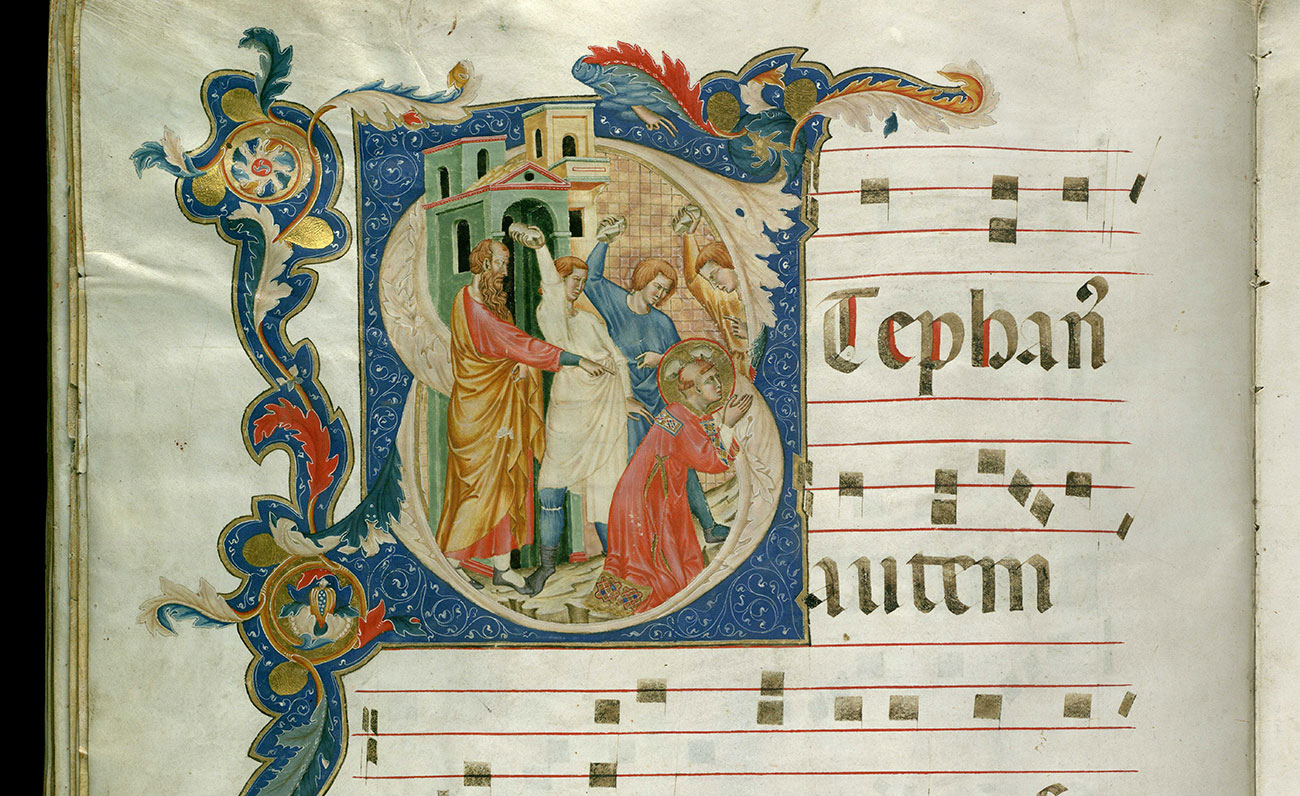 STephan̄
autem